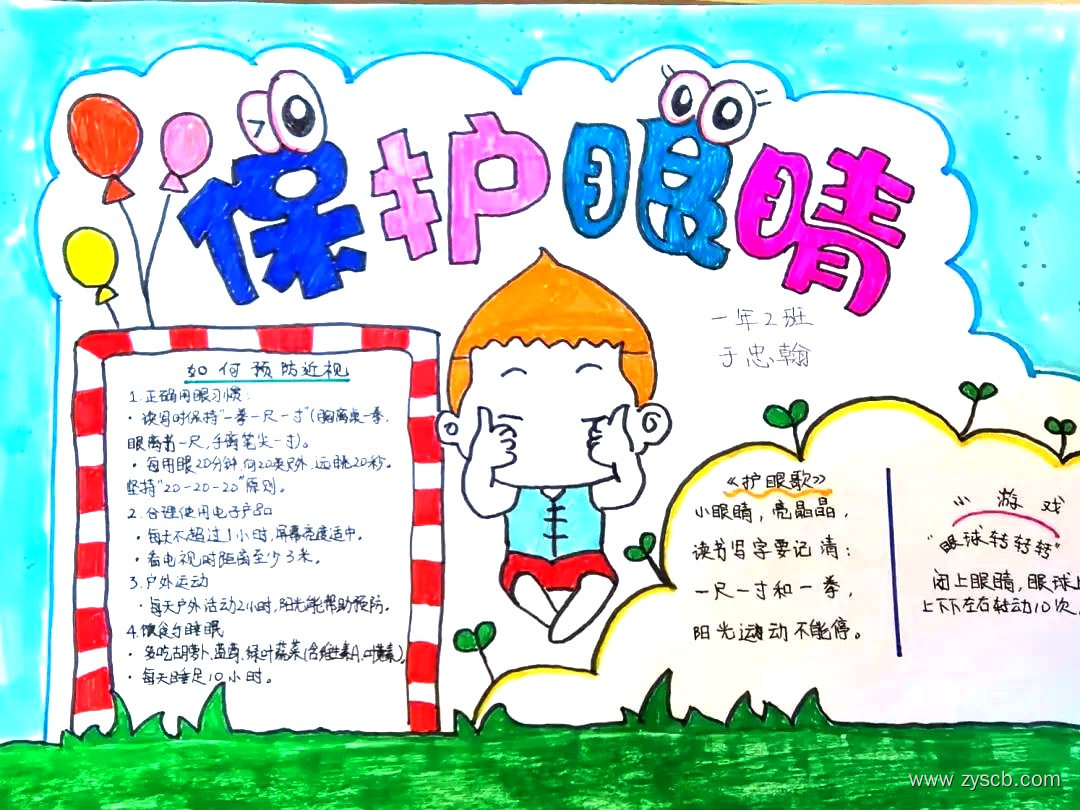 保护眼睛
一年2班
于忠翰
如何预防近视
1.正确用眼习惯:
· 读写时保持"一拳一尺一寸"(胸离桌一拳,
眼离书一尺,手离笔尖一寸)。
· 每用眼20分钟,向20英尺外,远眺20秒。
坚持"20-20-20"原则。
2.合理使用电子产品
· 每天不超过1小时,屏幕亮度适中。
· 看电视时距离至少3米。
3.户外运动
· 每天户外活动2小时,阳光能帮助预防。
4.饮食与睡眠
· 多吃胡萝卜、蓝莓、绿叶蔬菜(含维生素A、叶黄素)
· 每天睡足10小时。
《护眼歌》
小眼睛,亮晶晶,
读书写字要记清:
一尺一寸和一拳,
阳光运动不能停。
小游戏
"眼球转转转"
闭上眼睛,眼球上
上下左右转动10次,
www.zyscb.com